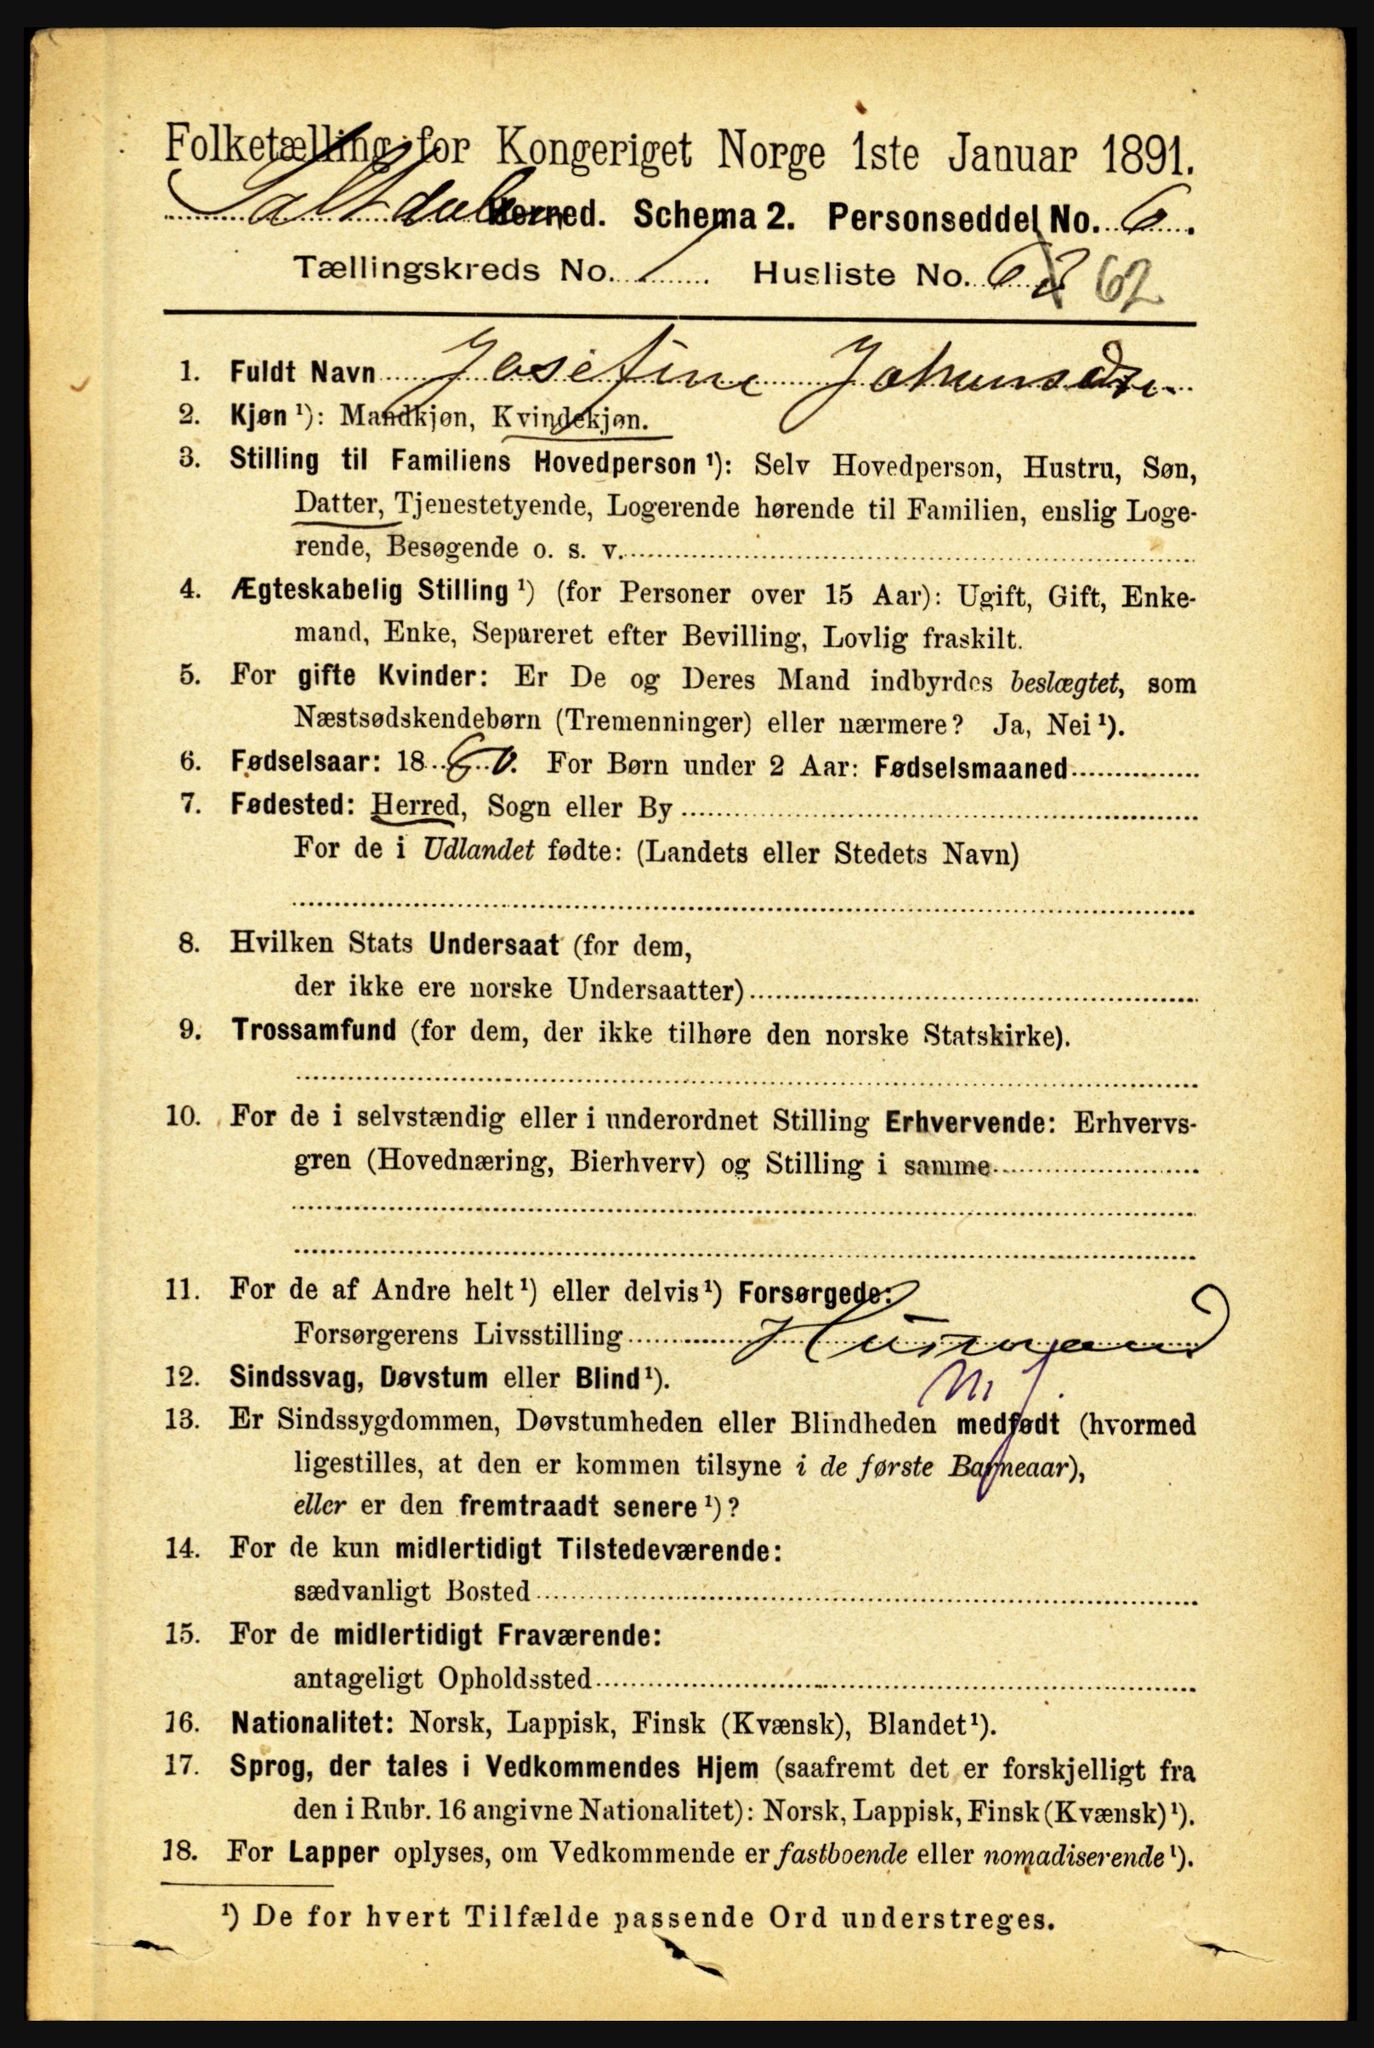 Folketælling for Kongeriget Norge 1ste Januar 1891.
Saltdalen Herred. Schema 2. Personseddel No. 6.
Tællingskreds No. 1 Husliste No. 62
1. Fuldt Navn Josefine Johansdtr
2. Kjøn ¹): Mandkjøn, Kvindekjøn.
3. Stilling til Familiens Hovedperson ¹): Selv Hovedperson, Hustru, Søn,
Datter, Tjenestetyende, Logerende hørende til Familien, enslig Loge-
rende, Besøgende o. s. v.
4. Ægteskabelig Stilling ¹) (for Personer over 15 Aar): Ugift, Gift, Enke-
mand, Enke, Separeret efter Bevilling, Lovlig fraskilt.
5. For gifte Kvinder: Er De og Deres Mand indbyrdes beslægtet, som
Næstsødskendebørn (Tremenninger) eller nærmere? Ja, Nei ¹).
6. Fødselsaar: 18 For Børn under 2 Aar: Fødselsmaaned
7. Fødested: Herred, Sogn eller By
For de i Udlandet fødte: (Landets eller Stedets Navn)
8. Hvilken Stats Undersaat (for dem,
der ikke ere norske Undersaatter)
9. Trossamfund (for dem, der ikke tilhøre den norske Statskirke).
10. For de i selvstændig eller i underordnet Stilling Erhvervende: Erhvervs-
gren (Hovednæring, Bierhverv) og Stilling i samme
11. For de af Andre helt ¹) eller delvis ¹) Forsørgede:
Forsørgerens Livsstilling Husmand
12. Sindssvag, Døvstum eller Blind ¹).
13. Er Sindssygdommen, Døvstumheden eller Blindheden medfødt (hvormed
ligestilles, at den er kommen tilsyne i de første Barneaar),
eller er den fremtraadt senere ¹)?
14. For de kun midlertidigt Tilstedeværende:
sædvanligt Bosted
15. For de midlertidigt Fraværende:
antageligt Opholdssted
16. Nationalitet: Norsk, Lappisk, Finsk (Kvænsk), Blandet ¹).
17. Sprog, der tales i Vedkommendes Hjem (saafremt det er forskjelligt fra
den i Rubr. 16 angivne Nationalitet): Norsk, Lappisk, Finsk (Kvænsk) ¹).
18. For Lapper oplyses, om Vedkommende er fastboende eller nomadiserende ¹).
¹) De for hvert Tilfælde passende Ord understreges.